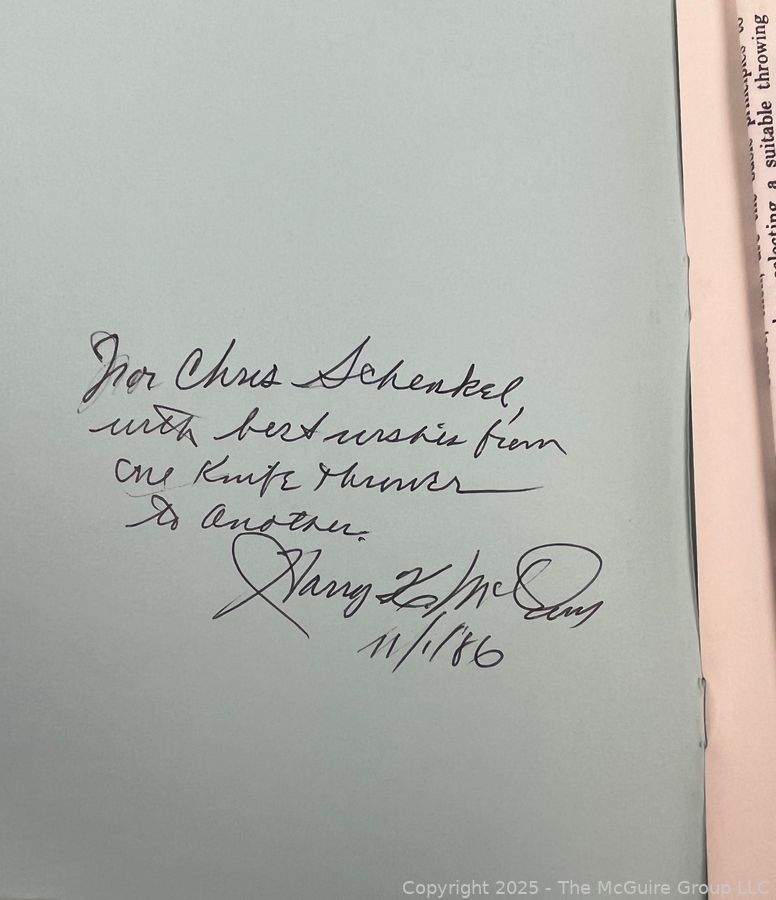 For Chris Schenkel,
with best wishes from
one Knife thrower
to another.
Harry K. McEvoy
11/1/86
suitable throwing
selecting a
basic principles to
are the
Copyright 2025 - The McGuire Group LLC